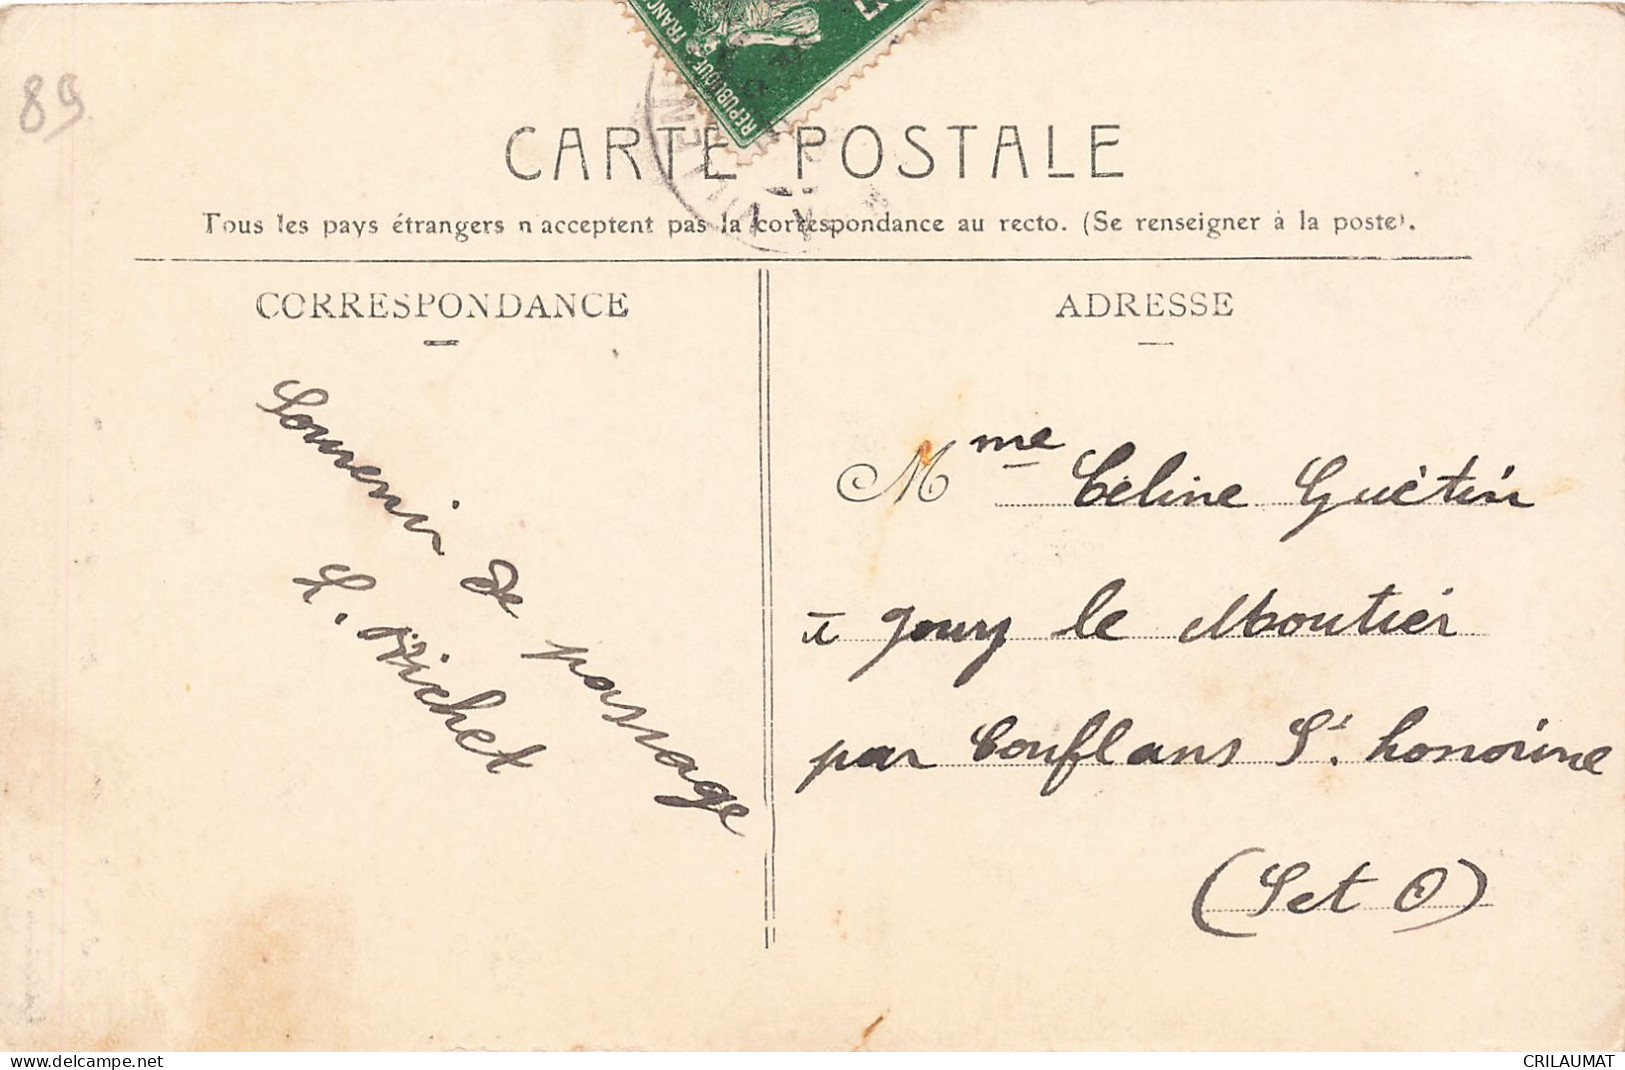 89
RÉPUBLIQUE FRANC
CARTE POSTALE
Tous les pays étrangers n'acceptent pas la correspondance au recto. (Se renseigner à la poste).
CORRESPONDANCE
Souvenir de passage
L. Richet
ADRESSE
Mme Céline Guétin
à Jouy le Moutier
par Conflans St. honorine
(S et O)
delcampe.net
CRILAUMAT